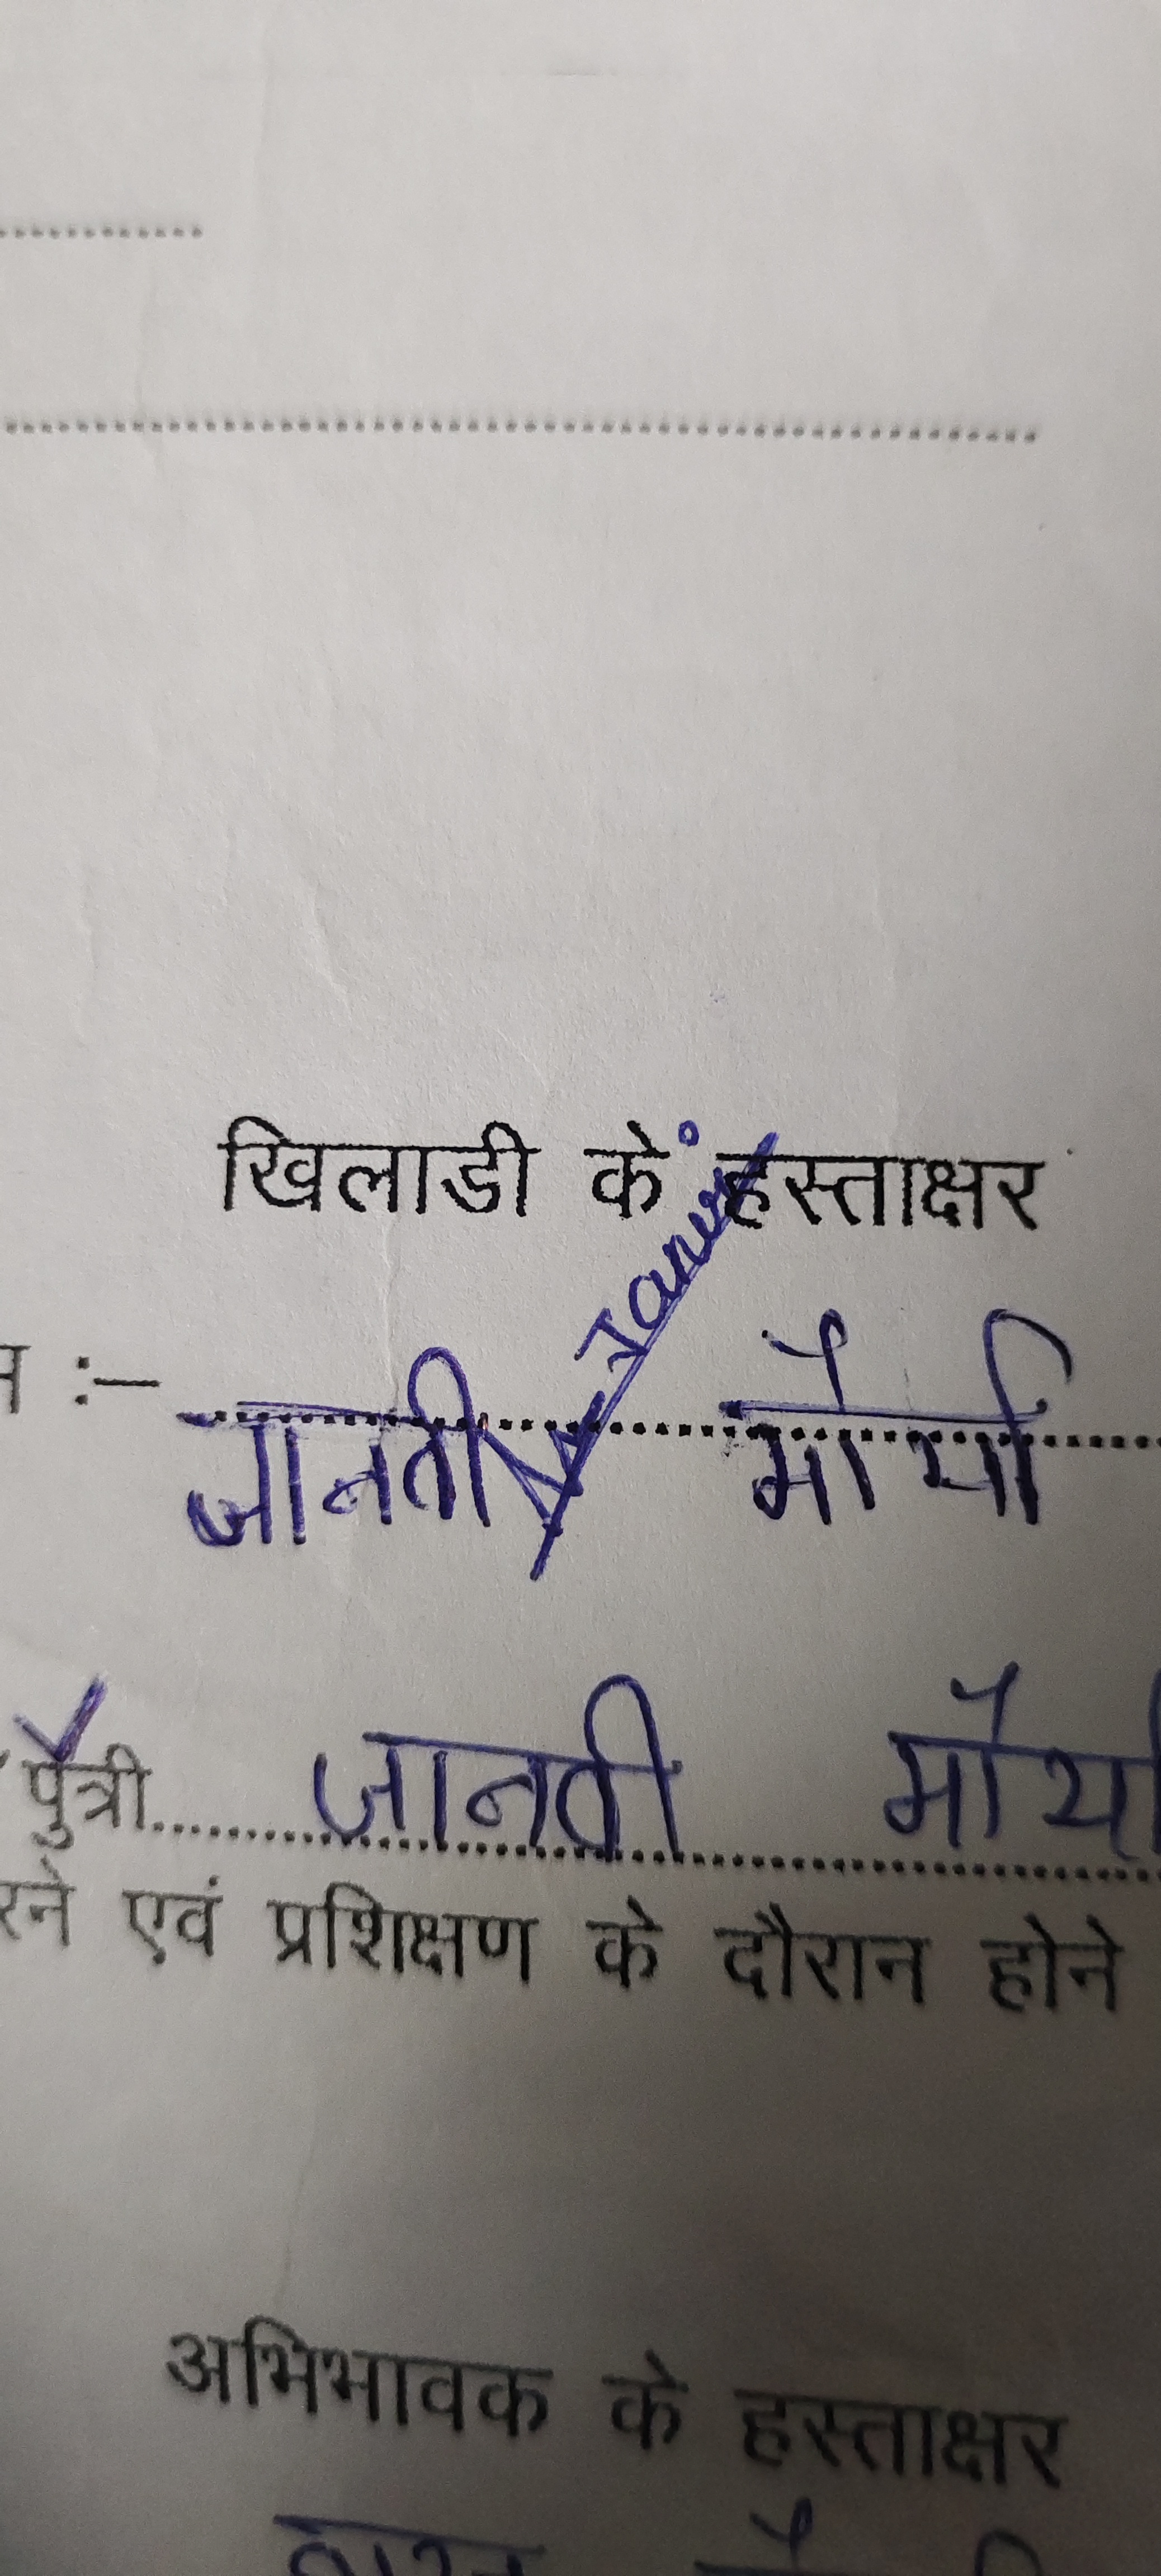 खिलाडी के हस्ताक्षर
:– जानती मौर्या
पुत्री जानती मौर्या
एवं प्रशिक्षण के दौरान होने
अभिभावक के हस्ताक्षर